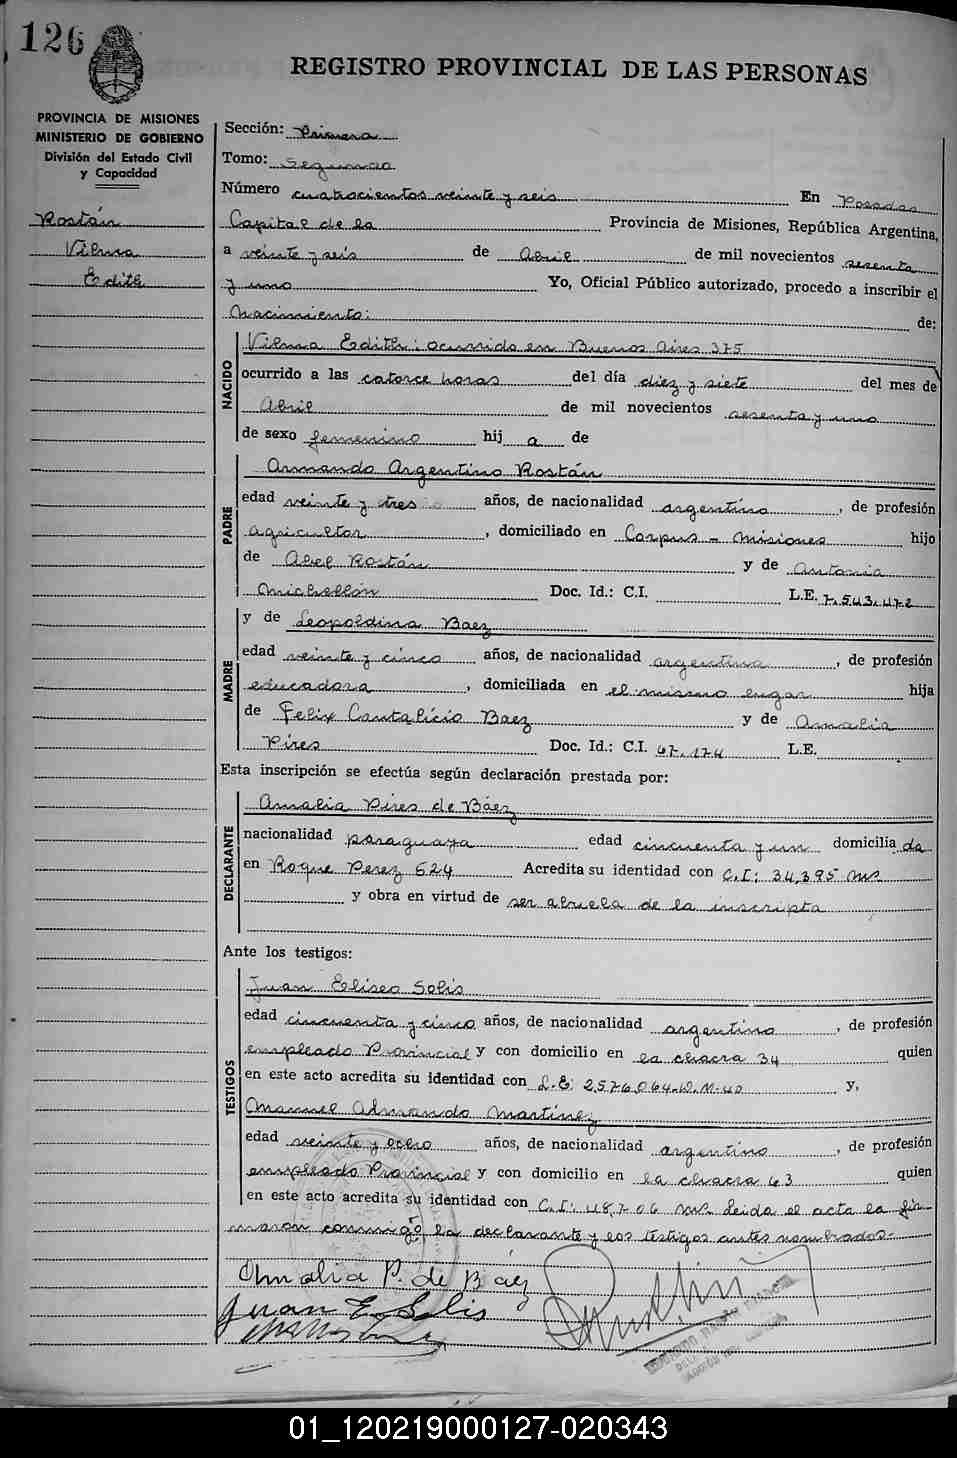 126
REGISTRO PROVINCIAL DE LAS PERSONAS
PROVINCIA DE MISIONES
MINISTERIO DE GOBIERNO
División del Estado Civil
y Capacidad
Rostán
Vilma
Edith
Sección: Primera
Tomo: Segundo
Número cuatrocientos veinte y seis En Posadas
Capital de la Provincia de Misiones, República Argentina,
a veinte y seis de Abril de mil novecientos sesenta
y uno Yo, Oficial Público autorizado, procedo a inscribir el
Nacimiento: de:
NACIDO
Vilma Edith: ocurrido en Buenos Aires 375
ocurrido a las catorce horas del día diez y siete del mes de
Abril de mil novecientos sesenta y uno
de sexo femenino hij a de
PADRE
Armando Argentino Rostán
edad veinte y tres años, de nacionalidad argentino, de profesión
agricultor, domiciliado en Corpus - Misiones hijo
de Abel Rostán y de Antonia
Michellón Doc. Id.: C.I. L.E. 7.543.472
y de Leopoldina Baez
MADRE
edad veinte y cinco años, de nacionalidad argentina, de profesión
educadora, domiciliada en el mismo lugar hija
de Felix Cantalicio Baez y de Amalia
Pires Doc. Id.: C.I. 67.174 L.E.
Esta inscripción se efectúa según declaración prestada por:
DECLARANTE
Amalia Pires de Báez
nacionalidad paraguaya edad cincuenta y un domicilia da
en Roque Perez 624 Acredita su identidad con C.I: 34.395 Ms.
y obra en virtud de ser abuela de la inscripta
Ante los testigos:
TESTIGOS
Juan Eliseo Solis
edad cincuenta y cinco años, de nacionalidad argentino, de profesión
empleado Provincial y con domicilio en la chacra 34 quien
en este acto acredita su identidad con L.E: 2576064-D.M-40 y,
Manuel Armando Martínez
edad veinte y ocho años, de nacionalidad argentino, de profesión
empleado Provincial y con domicilio en la chacra 63 quien
en este acto acredita su identidad con C.I: 48.706 Ms. Leida el acta la fir-
maron conmigo la declarante y los testigos antes nombrados.-
Amalia P. de Báez
Juan E. Solis
01_120219000127-020343